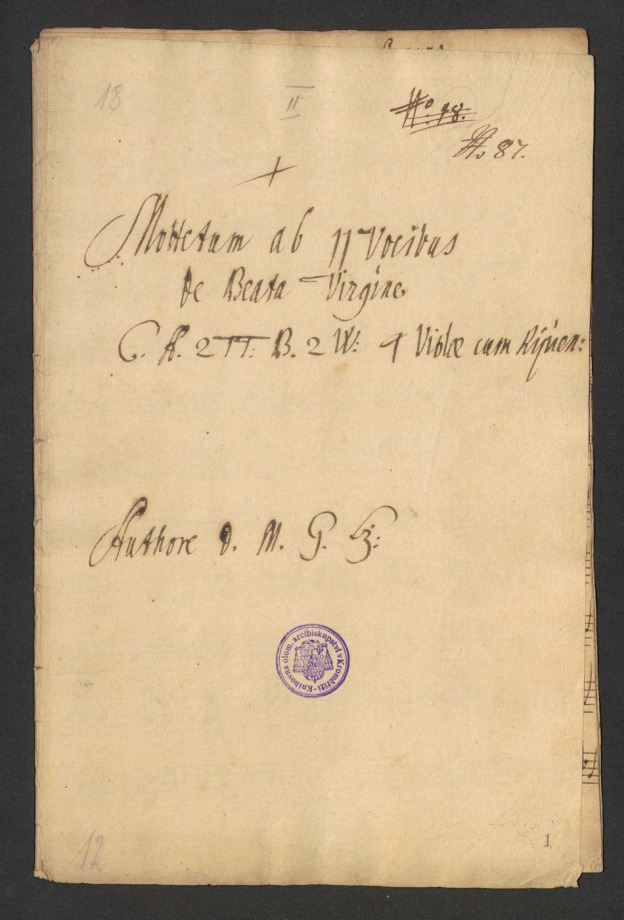 18
II
No. 18.
No 87.
Mottetum ab 11 Vocibus
De Beata Virgine
C. A. 2 TT: B. 2 VV: 4 Violæ cum Ripien:
Authore D. M. G.
Knihovna olom. arcibiskupství v Kroměříži
12
1